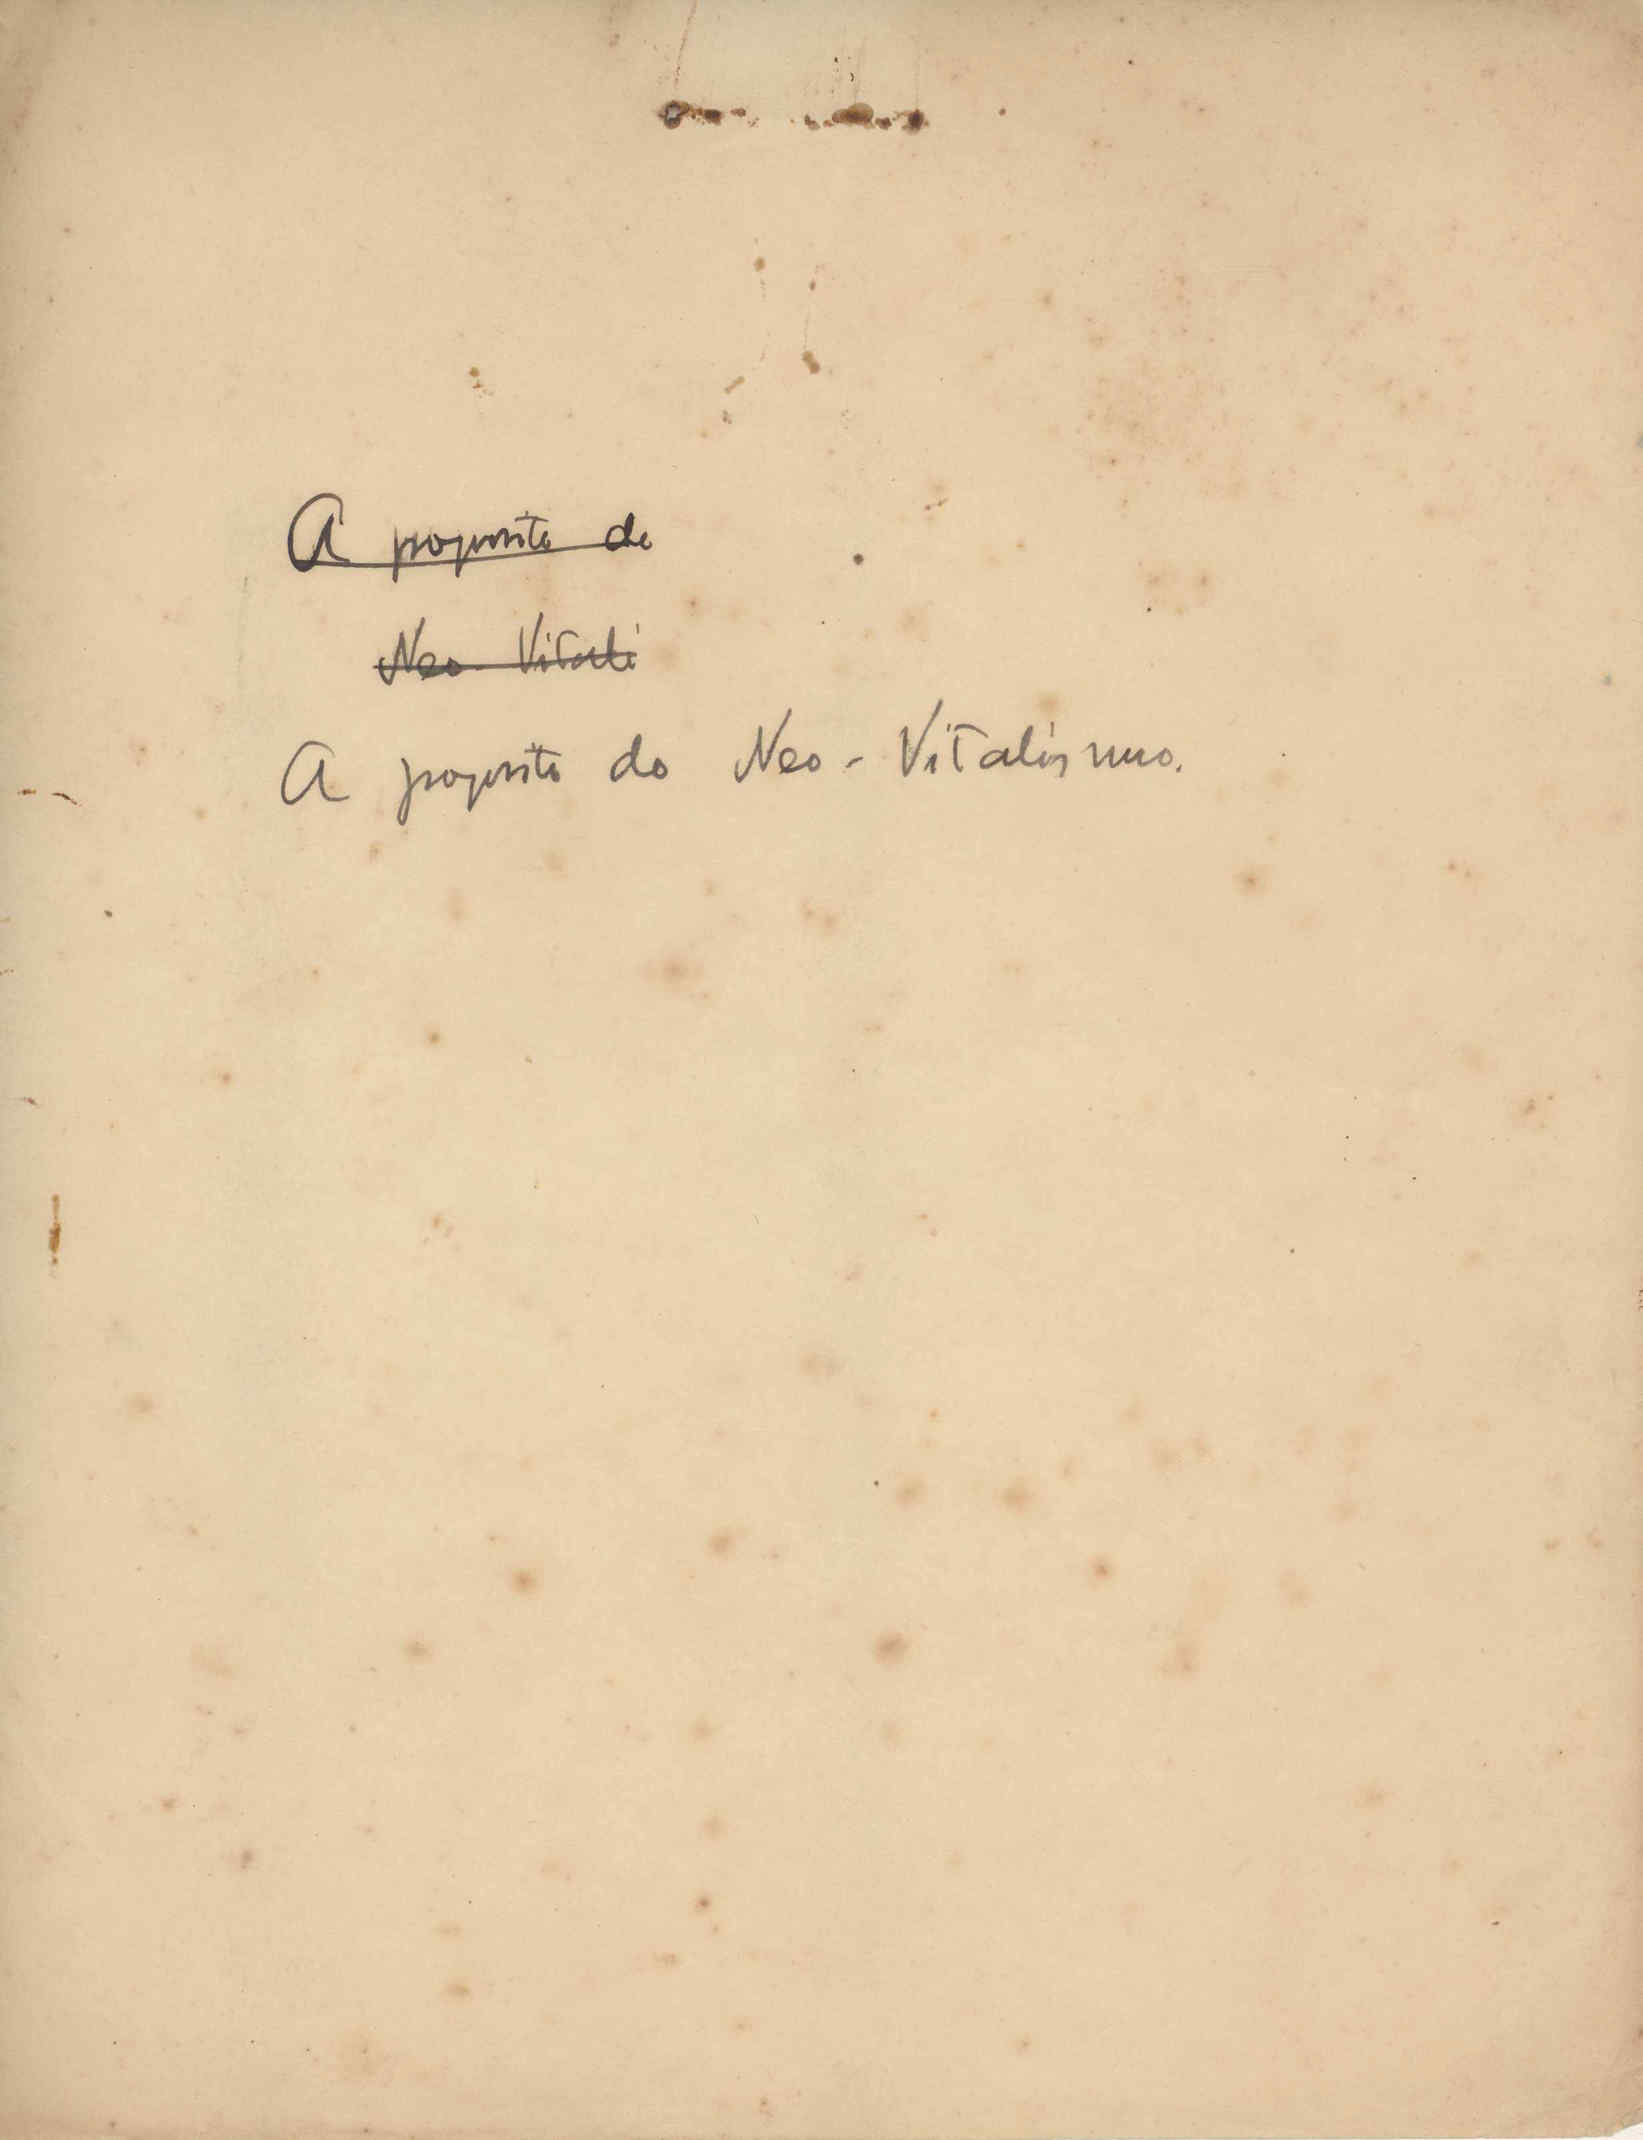 A proposito de
Neo-Vitali
A proposito do Neo-Vitalismo.